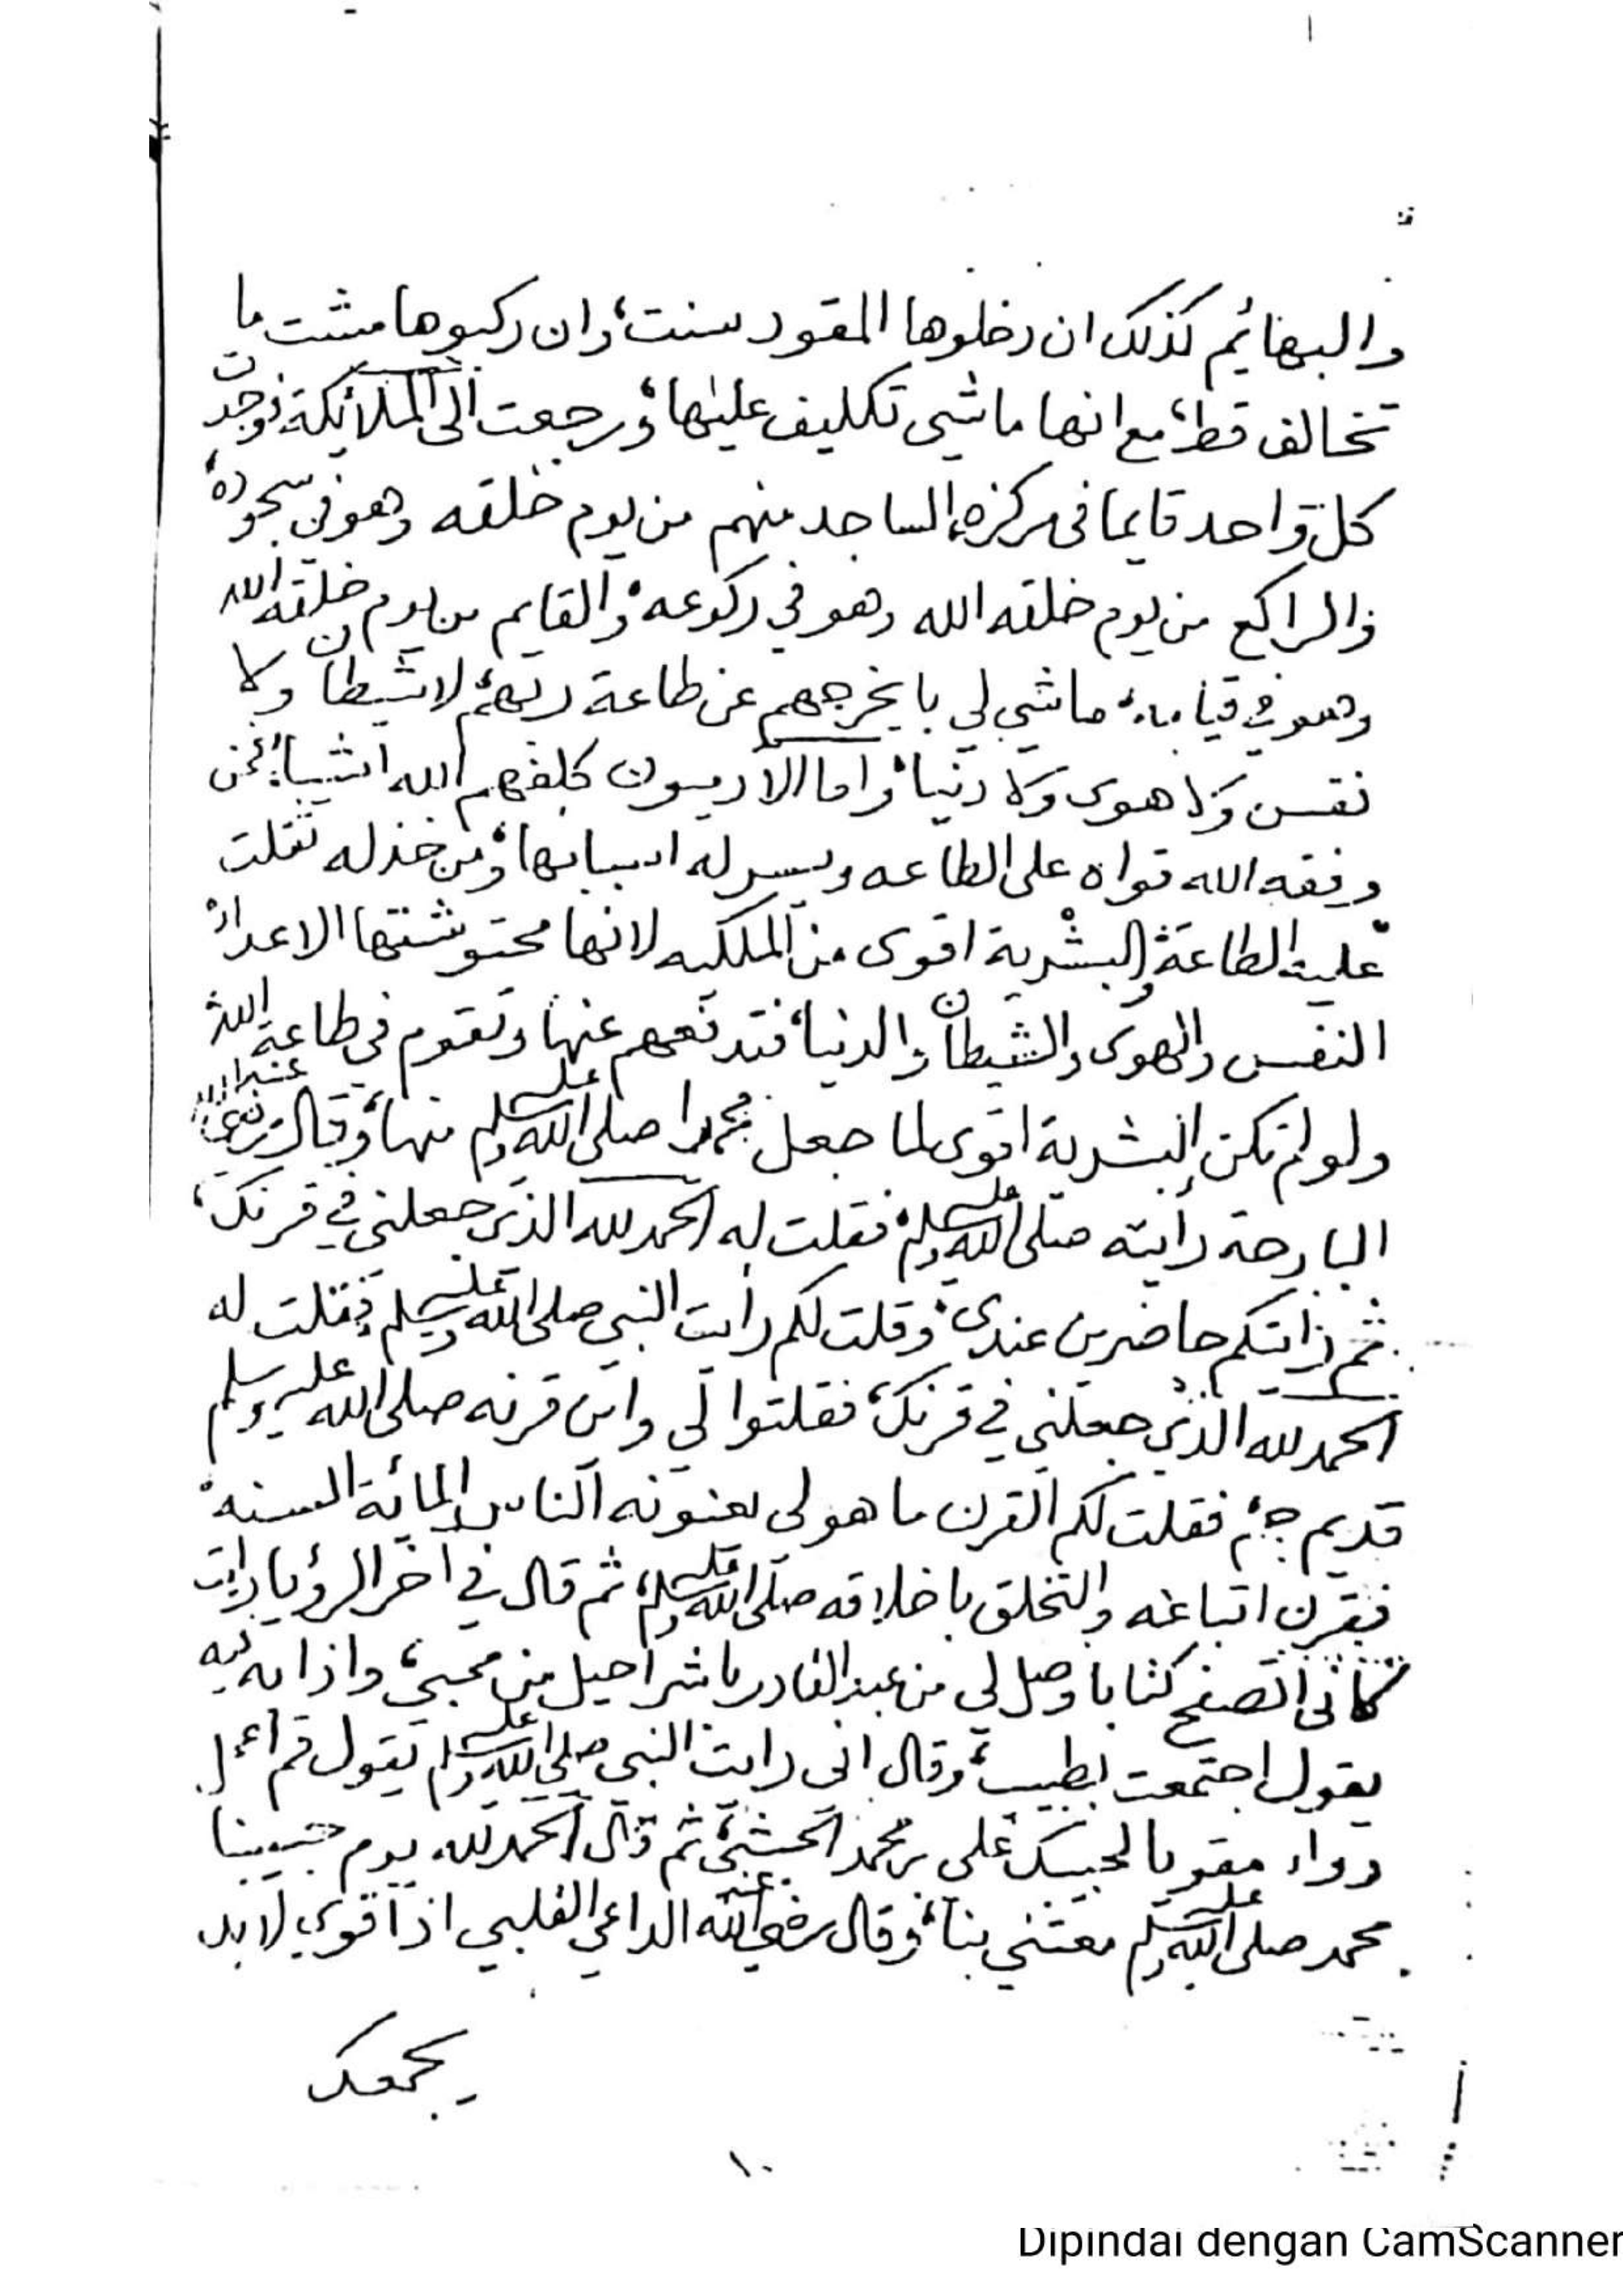 والبهائم كذلك ان دخلوها المقود سنت، وان ركبوها مشت ما
تخالف قط، مع انها ماشي تكليف عليها، ورجعت الى الملائكة فوجدت
كل واحد قايما في مركزه، الساجد منهم من يوم خلقه وهو في سجوده،
والراكع من يوم خلقه الله وهو في ركوعه، والقايم من يوم خلقه الله
وهو في قيامه، ماشي لي بايخرجهم عن طاعة ربهم، لا شيطان ولا
نفس ولا هوى ولا دنيا، واما الادميون كلفهم الله اشياء، فمن
وفقه الله قواه على الطاعه ويسر له اسبابها، ومن خذله ثقلت
عليه الطاعة، والبشرية اقوى من الملكيه لانها محتوشتها الاعداء،
النفس والهوى والشيطان والدنيا، فتدفعهم عنها وتقوم في طاعة الله،
ولو لم تكن البشرية اقوى لما جعل محمدا صلى الله عليه وسلم منها، وقال رضي الله عنه
البارحة رأيته صلى الله عليه وسلم، فقلت له الحمد لله الذي جعلني في قرنك،
ثم رأيتكم حاضرين عندي، وقلت لكم رأيت النبي صلى الله عليه وسلم فقلت له
الحمد لله الذي جعلني في قرنك، فقلتوا لي واين قرنه صلى الله عليه وسلم
قديم جم، فقلت لكم القرن ما هو لي يعنونه الناس المائة السنه،
فقرن اتباعه والتخلق باخلاقه صلى الله عليه وسلم، ثم قال في اخر الرؤيا رايت
كأني اتصفح كتابا وصل لي من عبدالقادر باشراحيل من محبي، واذا به فيه
يقول اجتمعت بطبيب، وقال اني رايت النبي صلى الله عليه وسلم يقول قم اعمل
دواء مقويا لحبيبك علي بن محمد الحبشي، ثم قال الحمد لله يوم حبيبنا
محمد صلى الله عليه وسلم معتني بنا، وقال رضي الله عنه الداعي القلبي اذا قوي لا بد
يجمعك
١٠
Dipindai dengan CamScanner